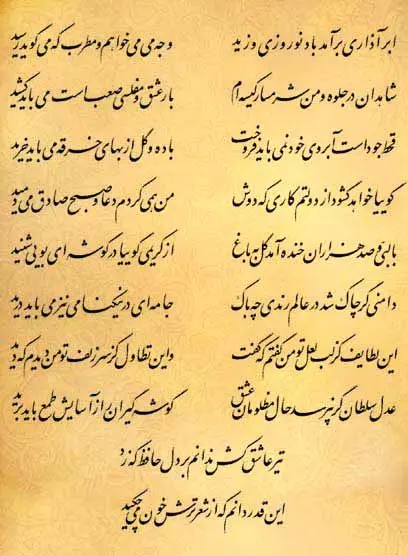 ابر آذاری برآمد باد نوروزی وزید وجه می می خواهم و مطرب که می گوید رسید
شاهدان در جلوه و من شرمسار کیسه ام بار عشق و مفلسی صعب است می باید کشید
قحط جود است آبروی خود نمی باید فروخت باده و گل از بهای خرقه می باید خرید
گوییا خواهد گشود از دولتم کاری که دوش من همی کردم دعا و صبح صادق می دمید
با لبی و صد هزاران خنده آمد گل به باغ از کریمی گوییا در گوشه ای بویی شنید
دامنی گر چاک شد در عالم رندی چه باک جامه ای در نیکنامی نیز می باید درید
این لطایف کز لب لعل تو من گفتم که گفت واین تطاول کز سر زلف تو من دیدم که دید
عدل سلطان گر نپرسد حال مظلومان عشق گوشه گیران را از آسایش طمع باید برید
تیر عاشق کش ندانم بر دل حافظ که زد
این قدر دانم که از شعر ترش خون می چکید